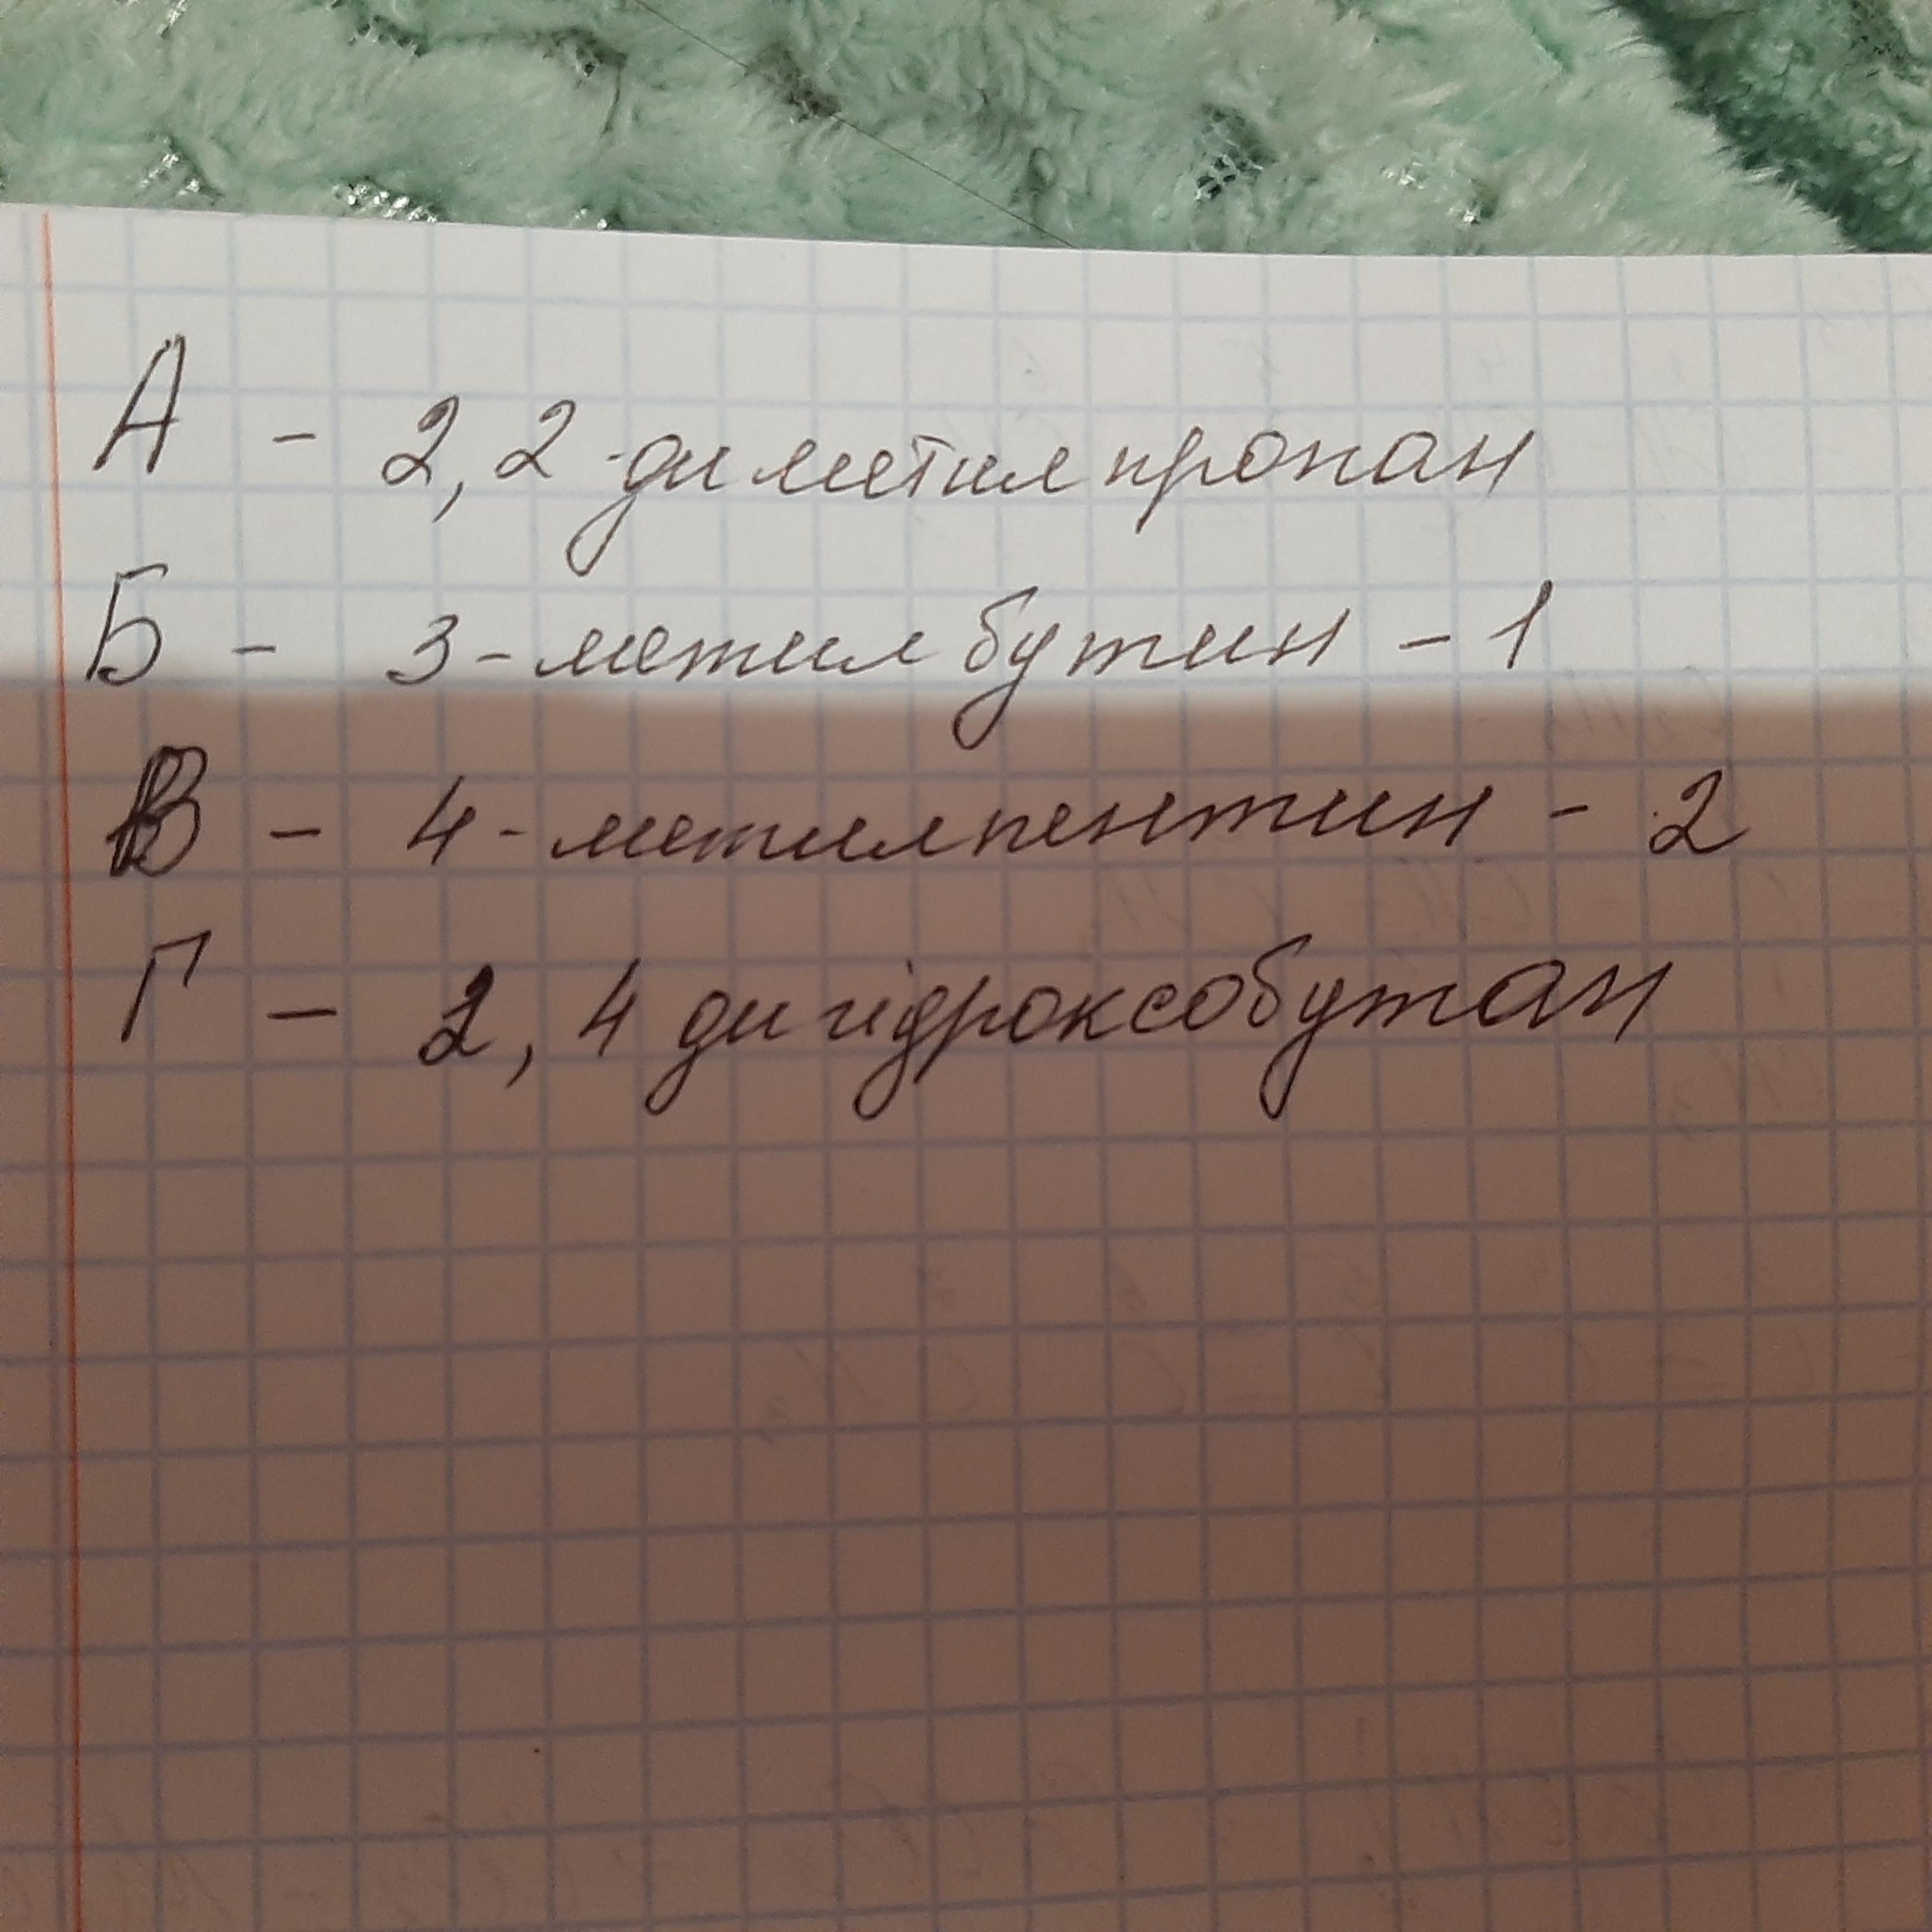 А - 2,2-диметилпропан
Б - 3-метилбутин - 1
В - 4-метилпентин - 2
Г - 2,4 дигідроксобутан